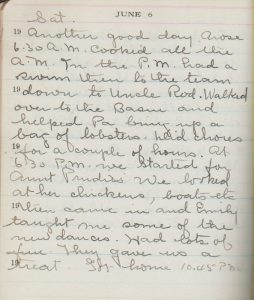 JUNE 6
Sat.
19 Another good day. Arose
6.30 A.M. Cooked all the
A.M. In the P.M. had a
swim then to the team
19 down to Uncle Rod. Walked
over to the Basin and
helped Pa bring up a
bag of lobsters. Did chores
19 for a couple of hours. At
6:30 P.M. we started for
Aunt Prudies. We looked
at her chickens, boats etc
19 then came in and Emily
taught me some of the
new dances. Had lots of
fun They gave us a
19 treat home 10.45 P.M.